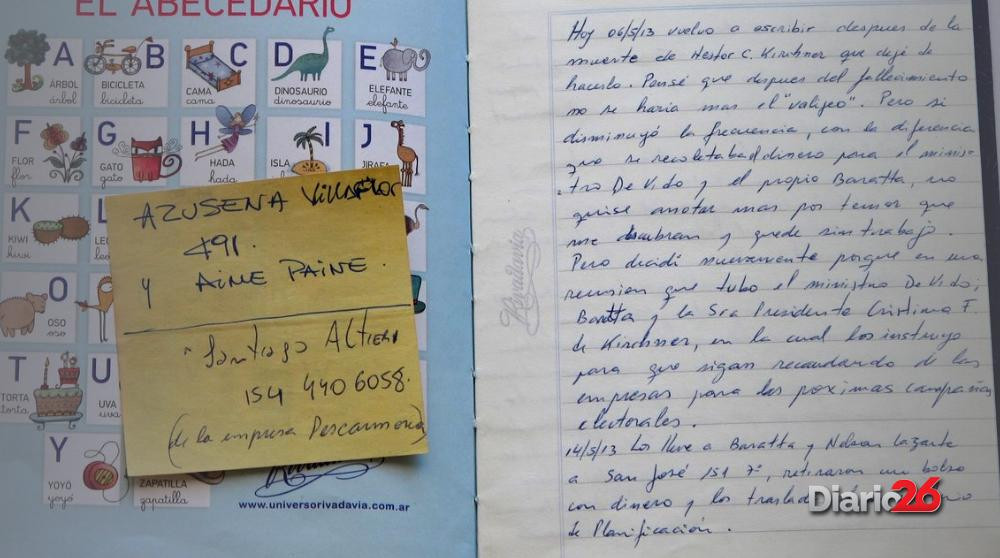 EL ABECEDARIO
A
ÁRBOL
árbol
B
BICICLETA
bicicleta
C
CAMA
cama
D
DINOSAURIO
dinosaurio
E
ELEFANTE
elefante
F
FLOR
flor
G
GATO
gato
H
HADA
hada
I
ISLA
J
JIRAFA
K
KIWI
kiwi
L
O
OSO
oso
T
TORTA
torta
U
UVA
uva
Y
YOYÓ
yoyó
ZAPATILLA
zapatilla
Rivadavia
www.universorivadavia.com.ar
AZUSENA Villaflor
491.
Y AIME PAINE.
Santiago ALTIERI
154 4406058.
(de la empresa Pescarmona)
Rivadavia
Hoy 06/5/13 vuelvo a escribir despues de la
muerte de Nestor C. Kirchner que dejé de
hacerlo. Pensé que despues del fallecimiento
no se haria mas el "valijeo". Pero si
disminuyó la frecuencia, con la diferencia
que se recoletaba el dinero para el minis-
tro De Vido y el propio Baratta, no
quise anotar mas por temor que
me descubran y quede sin trabajo.
Pero decidí nuevamente porque en una
reunion que tubo el ministro De Vido;
Baratta y la Sra Presidente Cristina F.
de Kirchner, en la cual los instruyo
para que sigan recaudando de las
empresas para las proximas campañas
electorales.
14/5/13 Los lleve a Baratta y Nelson Lazarte
a San José 151 7º, retiraron un bolso
con dinero y los traslade
de Planificación.
Diario26